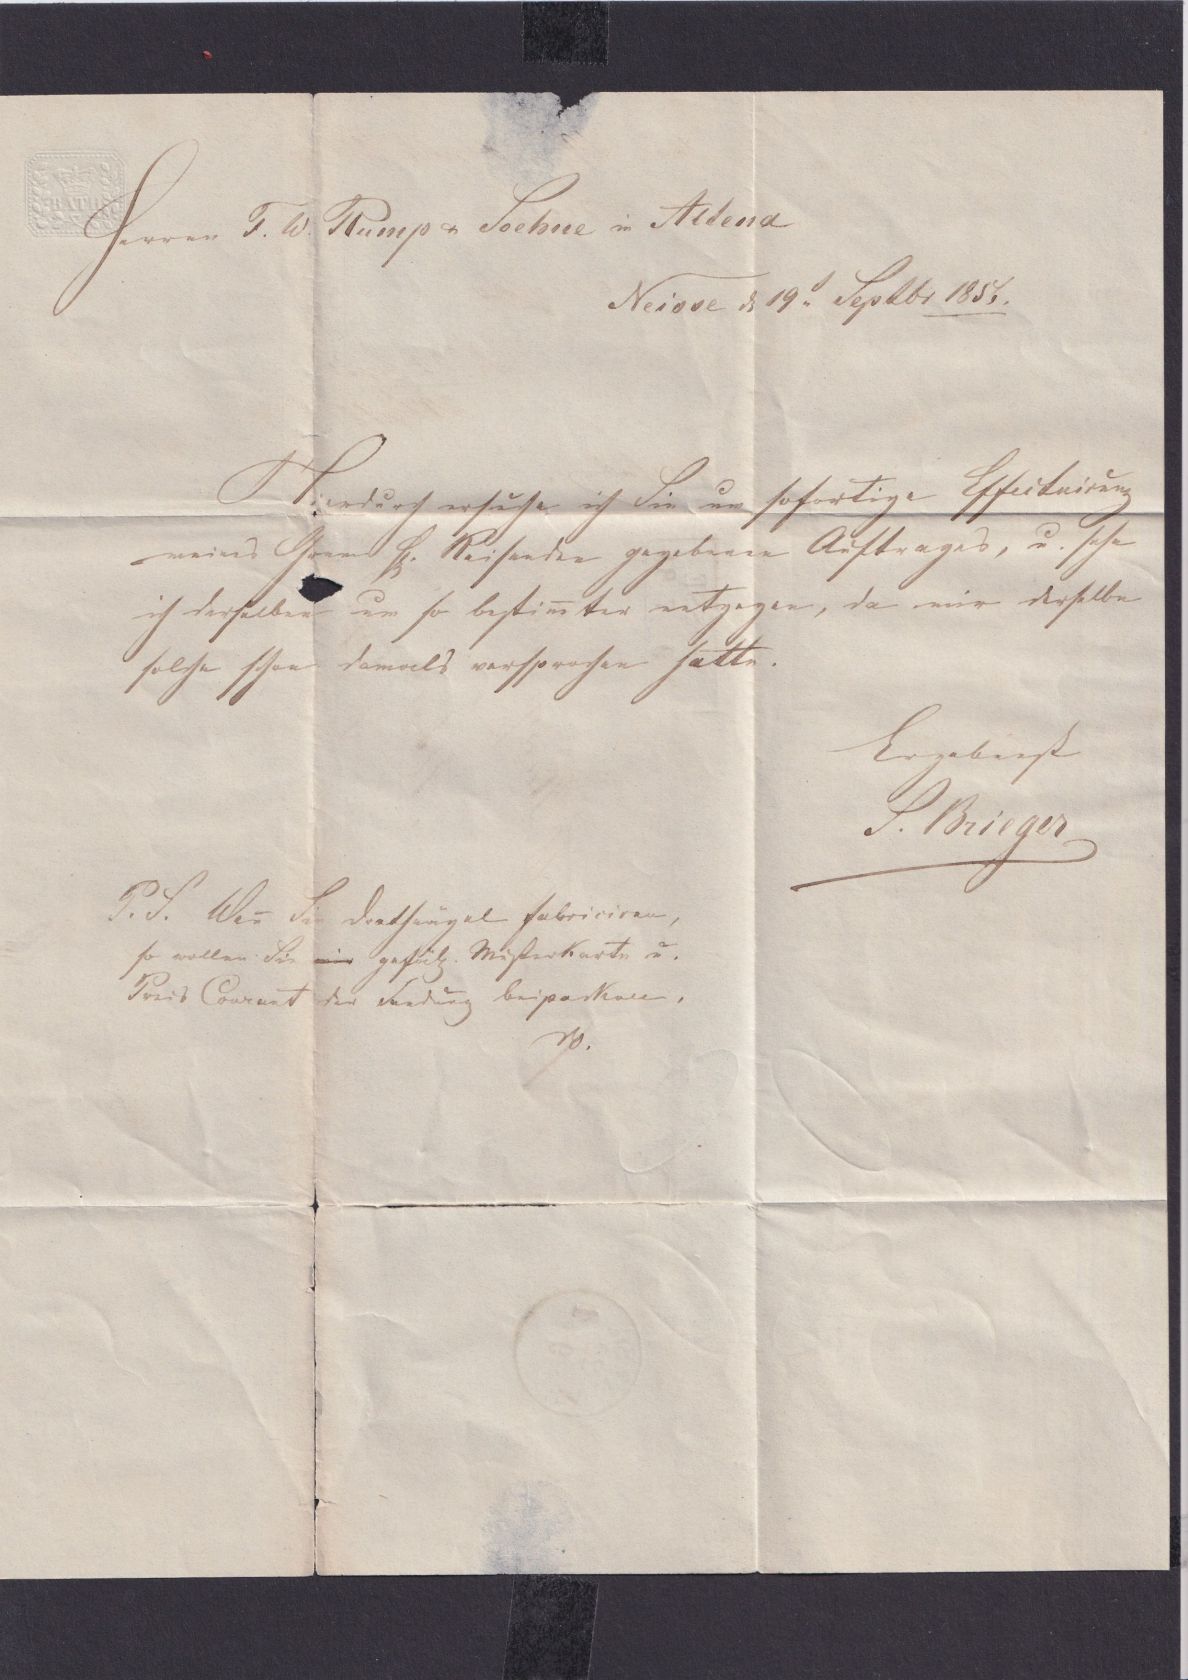 BATH
Herren F. W. Rump & Soehne in Altena
Neisse d 19t Septbr 185
Hierdurch ersuche ich Sie um sofortige Effectuirung
meines Ihrem H. Reisenden gegebenen Auftrages, u. sehe
ich derselben um so bestimmter entgegen, da mir derselbe
solche schon damals versprochen hatte.
Ergebenst
S. Brieger
P. S. Wen̄ Sie Drathnägel fabriciren,
so wollen Sie mir gefälg. Musterkarte u.
Preis Courant der Sendung beipacken.